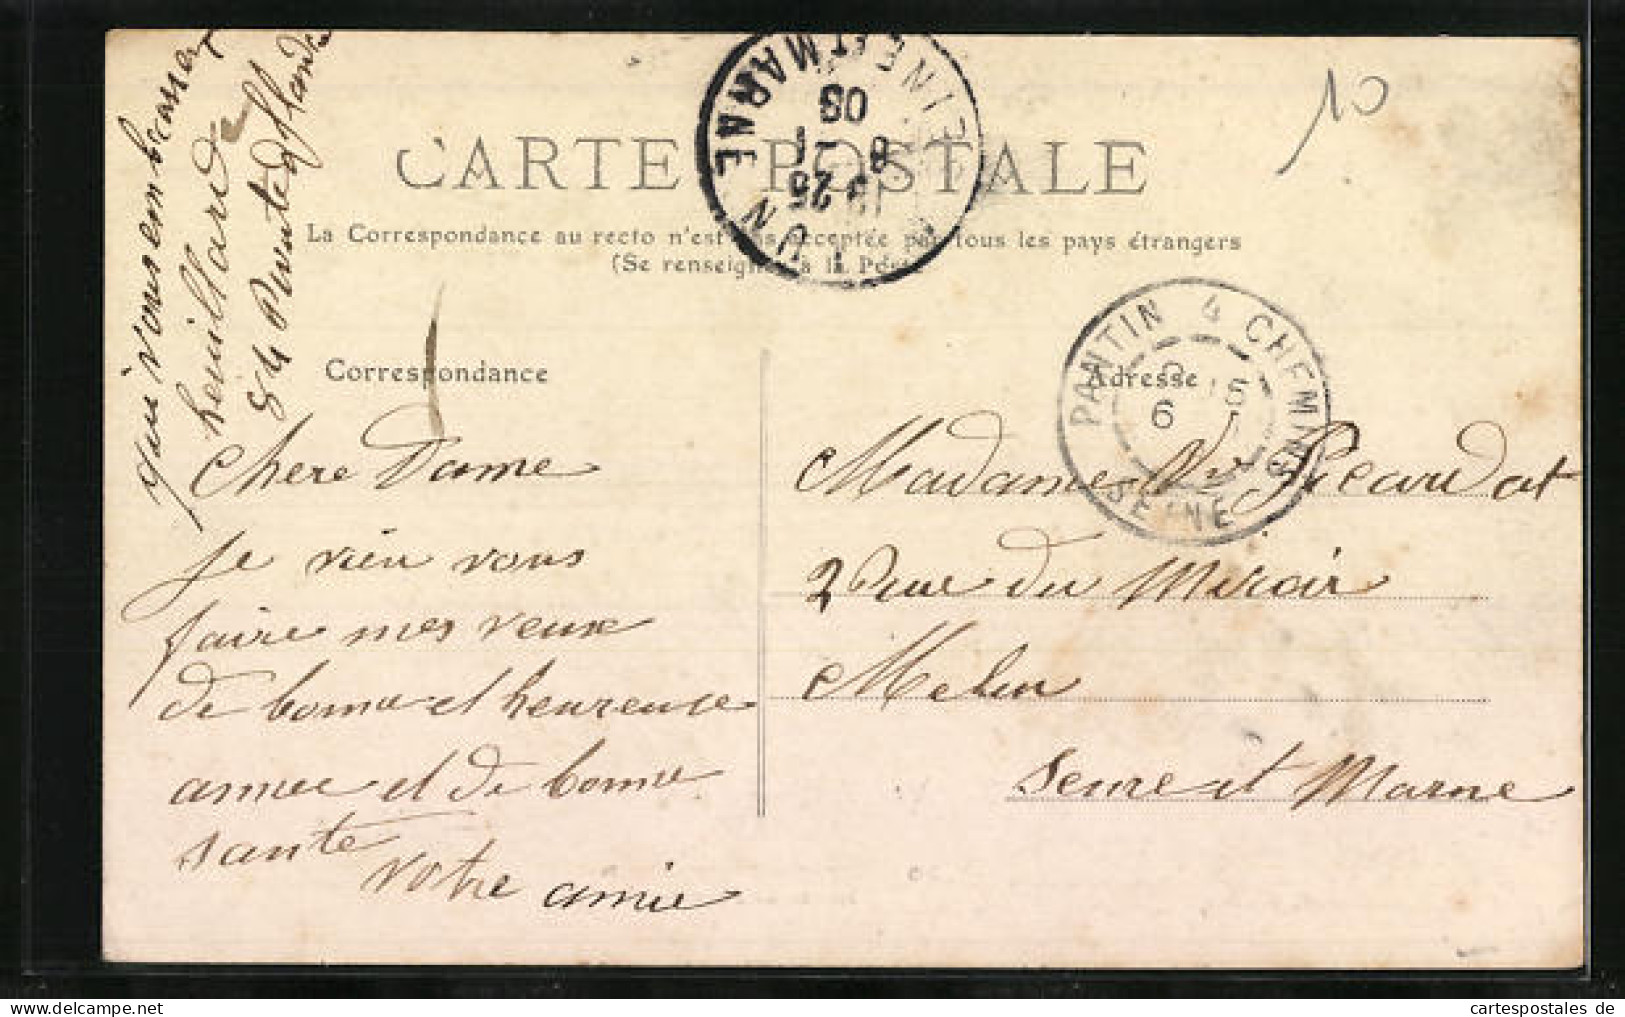 qui vous embrasse
heuillard
84 Rue de flandre
CARTE POSTALE
La Correspondance au recto n'est pas acceptée par tous les pays étrangers
(Se renseigner à la Poste)
10
MELUN
SEINE ET MARNE
25
08
PANTIN 4 CHEMINS
SEINE
6
Correspondance
Adresse
Chere Dame
je vien vous
faire mes veux
de bonne et heureuse
annee et de bonne
santé
votre amie
Madame Vve
2 Rue du Miroir
Melun
Seine et Marne
cartespostales de